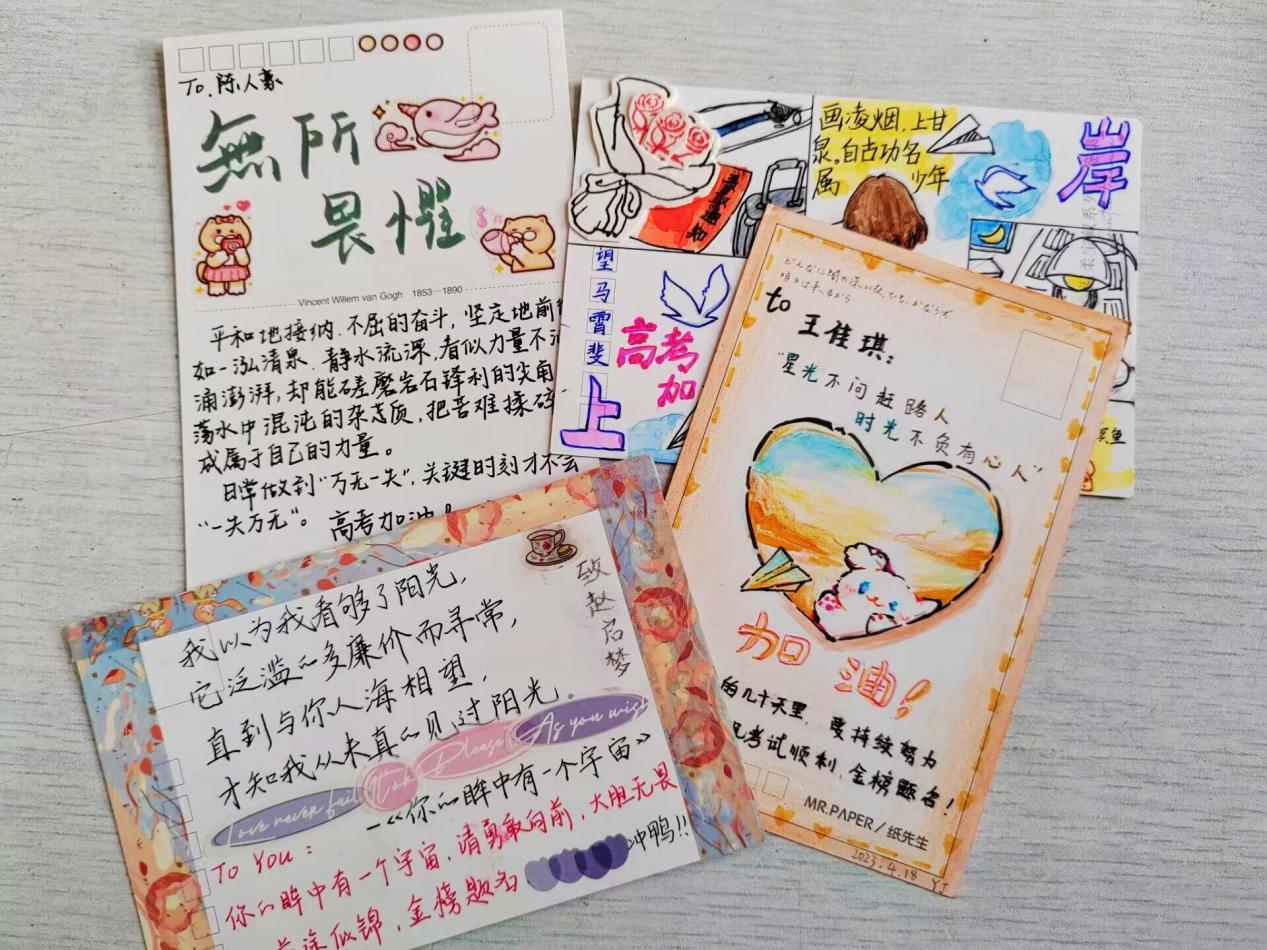 To.陈人豪
無所
畏惧
Vincent Willem van Gogh 1853－1890
平和地接纳、不屈的奋斗，坚定地前
如一泓清泉，静水流深，看似力量不
涌澎湃，却能磋磨岩石锋利的尖角
荡水中混沌的杂志质，把苦难揉
成属于自己的力量。
日常做到“万无一失”，关键时刻才不会
“一失万无”。高考加油！
画凌烟，上甘
泉。自古功名
属少年
岸
录取通知
望
马
霄
斐
高考
加
上
どんなに闇の深い夜でも、かならず
明日は来るから
to 王佳琪：
“星光不问赶路人
时光不负有心人”
加油！
的几十天里，要持续努力
祝考试顺利，金榜题名！
MR.PAPER/纸先生
2023.4.18 YJ
致赵启梦
我以为我看够了阳光，
它泛滥的多廉价而寻常，
直到与你人海相望，
才知我从未真的见过阳光。
Love never fail It ok Please As you wish
—《你的眸中有一个宇宙》
TO YOU：
你的眸中有一个宇宙，请勇敢向前，大胆无畏
前途似锦，金榜题名 冲鸭!!